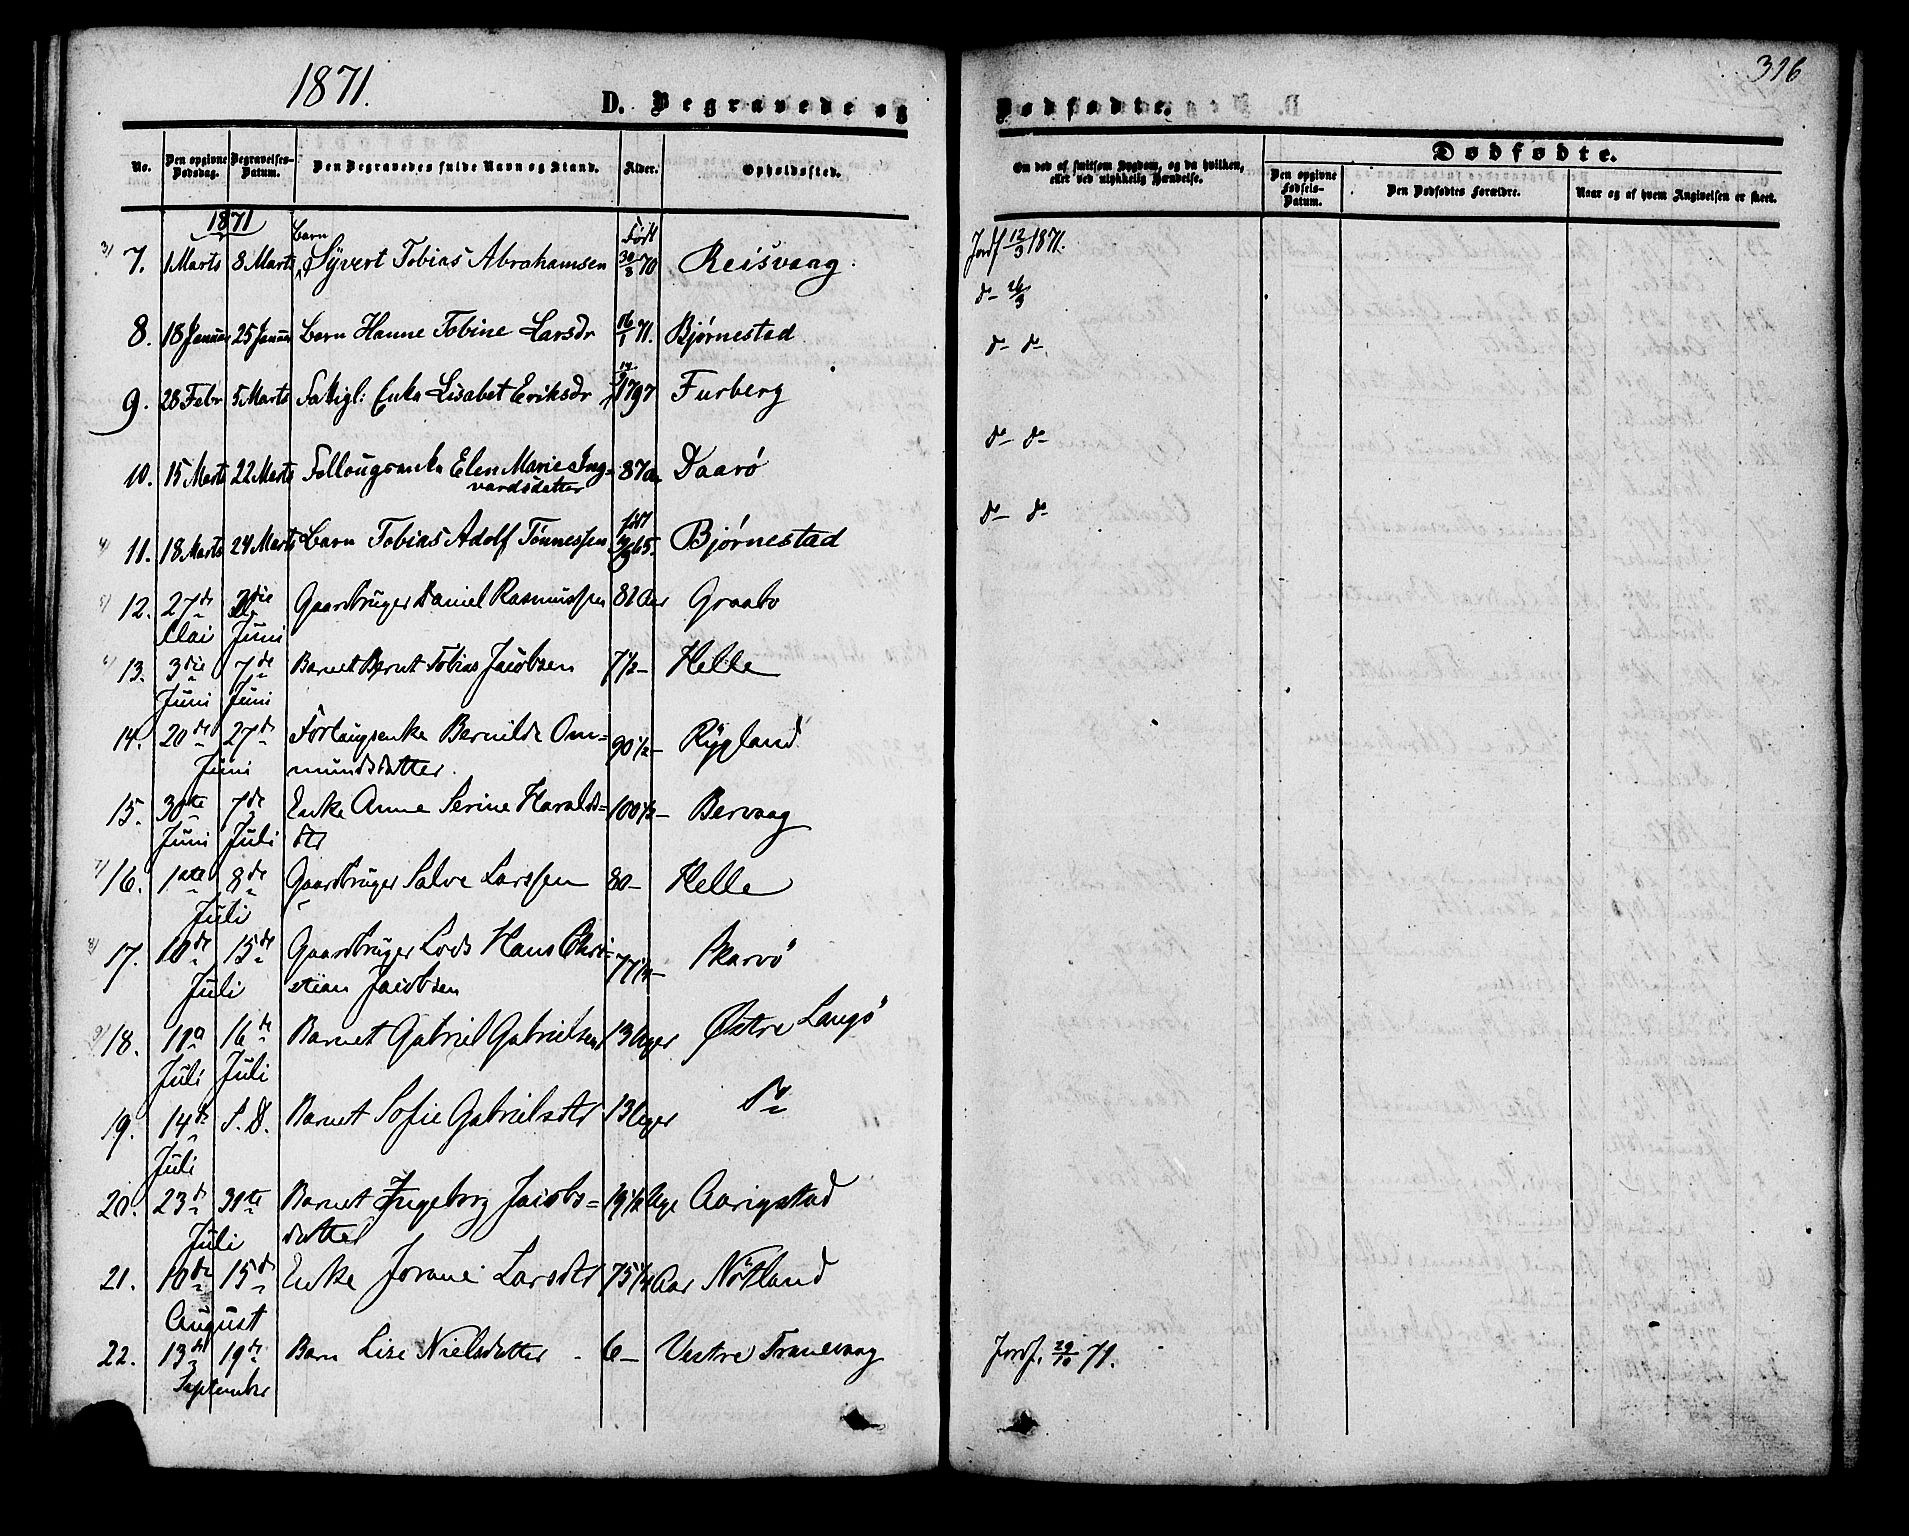 1871.
316
D. Begravede og
Dødfødte.
No.
Den opgivne Dødsdag.
Begravelses-Datum.
Den Begravedes fulde Navn og Stand.
Alder.
Opholdssted.
Om død af smitsom Sygdom, og da hvilken, eller ved ulykkelig Hændelse.
Dødfødte.
Den opgivne Fødsels-Datum.
Den Dødfødtes Forældre.
Naar og af hvem Angivelsen er skeet.
1871
3) 7. 1 Marts 8 Marts Barn Syvert Tobias Abrahamsen Født 30/8 70 Reisvaag Jordf 12/3 1871.
d- 26/3
8. 18 Januar 25 Januar Barn Hanne Tobine Larsdr 16/1 71. Bjørnestad d- d-
9. 28 Febr 5 Marts Fattigl: Enke Lisabet Eriksdr 1797 Furberg
d- d-
10. 15 Marts 22 Marts Follaugsenke Elen Marie Ing-
vardsdatter 87 Daarø
d- d-
4) 11. 18 Marts 24 Marts Barn Tobias Adolf Tønnessen født 65. Bjørnestad
5) 12. 27de Mai 2die Juni Gaardbruger Daniel Rasmussen 82 Aar Graabo
6) 13. 3die Juni 7de Juni Barnet Bernt Tobias Jacobsen 7 1/2 - Helle
14. 20de 27de Juni Forlaugsenke Bernilde Om-
mundsdatter. 90 1/2 - Rygland
15. 30te Juni 7de Juli Enke Anne Serine Haralds-
dtr 100 1/2 - Bervaag
7) 16. 1ste 8de Juli Gaardbruger Salve Larssen 80 - Helle
8) 17. 10de 15de Juli Gaardbruger Lods Hans Chri-
stian Jacobsen 77 1/2 - Skarvö
9) 18. 10de Juli 16de Juli Barnet Gabriel Gabrielsen 13 Uger Østre Langö
19. 14de Juli S. D. Barnet Sofie Gabrielsdtr 13 Uger Do
20. 23de 31te Juli Barnet Ingeborg Jacobs-
datter 19 1/2 Uge Aarigstad
21. 10de 15de August Enke Jorane Larsdtr 75 1/4 Aar Nötland
22. 13de 19de September Barn Lise Nielsdatter - 6 - Vestre Tranevaag Jordf. 29/10 71.